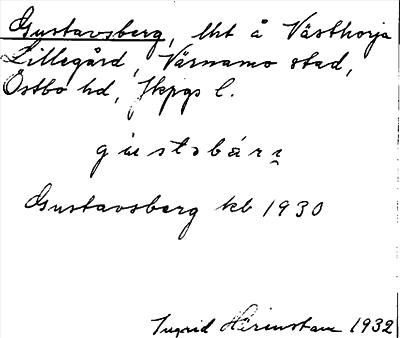 Gustavsberg, lht å Västhorja
Lillegård, Värnamo stad,
Östbo hd, Jkpgs l.
gustsbárı
Gustavsberg kb 1930
Ingrid 1932